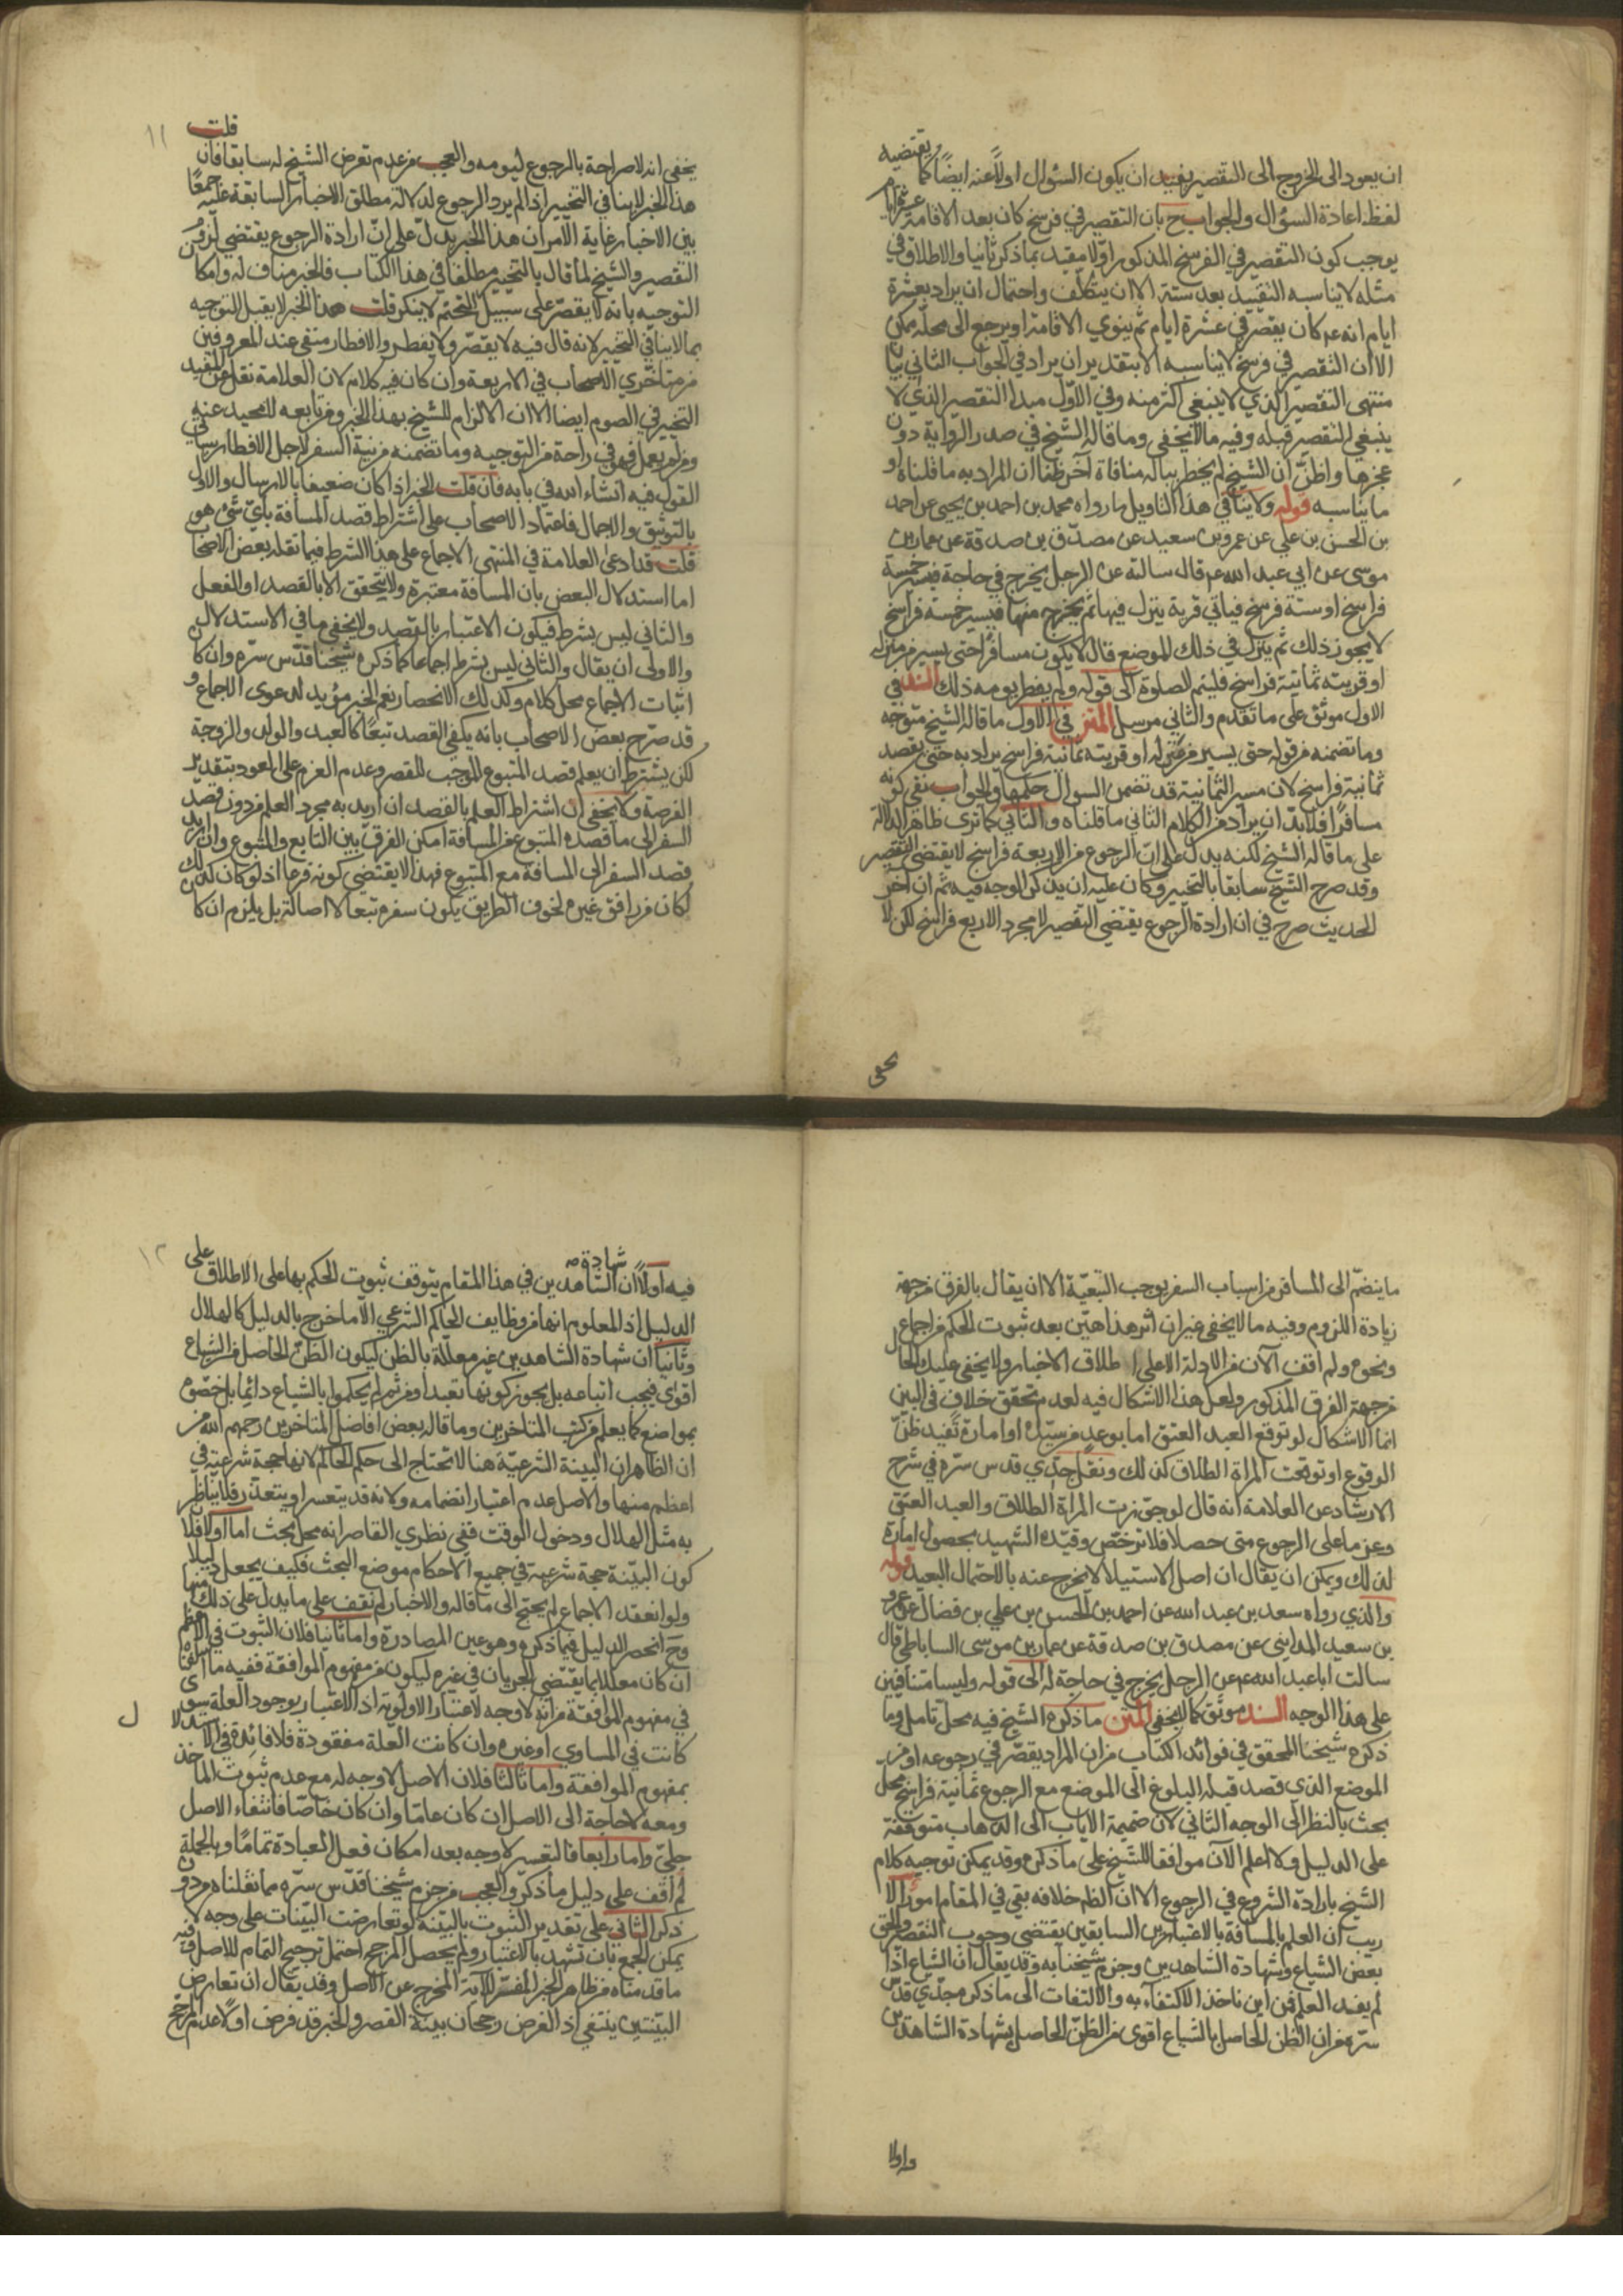 ان يعود الى الخروج الى التقصير يفيد ان يكون السؤال اولاً عنه ايضاً كما يقتضيه
لفظ اعادة السؤال والجواب ح بان التقصير في فرسخ كان بعد الاقامة عشرة ايام
يوجب كون التقصير في الفرسخ المذكور اوّلا مقيد بما ذكر ثانيا والاطلاق في
مثله لا يناسبه التقييد بعد ستة الا ان يتكلّف واحتمال ان يراد بعشرة
ايام انه عم كان يقصّر في عشرة ايام ثم ينوي الاقامة او يرجع الى محلّه ممكن
الا ان التقصير في فرسخ لا يناسبه الا بتقدير ان يراد في الجواب الثاني بيان
منتهى التقصير الذي لا ينبغي اكثر منه وفي الاوّل مبدا التقصير الذي لا
ينبغي التقصير قبله وفيه ما لا يخفى وما قاله الشيخ في صدر الرواية دون
عجزها واظنّ ان الشيخ لم يخطر بباله منافاة آخر ظنا ان المراد به ما قلناه او
ما يناسبه قوله ولا ينافي هذا التاويل ما رواه محمد بن احمد بن يحيى عن احمد
بن الحسن بن علي عن عمرو بن سعيد عن مصدّق بن صدقة عن عمار بن
موسى عن ابي عبد الله عم قال سالته عن الرجل يخرج في حاجة فيسير خمسة
فراسخ او ستة فرسخ فياتي قرية ينزل فيها ثم يخرج منها فيسير خمسة فراسخ
لا يجوز ذلك ثم ينزل في ذلك الموضع قال لا يكون مسافرا حتى يسير من منزله
او قريته ثمانية فراسخ فليتم الصلوة الى قوله ولم يفطر يومه ذلك السند في
الاول موثق على ما تقدم والثاني مرسل المتن في الاول ما قاله الشيخ متوجه
وما تضمنه من قوله حتى يسير من منزله او قريته ثمانية فراسخ يراد به حتى يقصد
ثمانية فراسخ لان مسير الثمانية قد تضمن السوال حكمها والجواب نفى كونه
مسافراً فلا بدّ ان يراد من الكلام الثاني ما قلناه والثاني كما ترى ظاهر الدلالة
على ما قاله الشيخ لكنه يدل على انّ الرجوع من الاربعة فراسخ لا يقتضى التقصير
وقد صرح الشيخ سابقا بالتخيير وكان عليه ان يذكر الوجه فيه ثم ان آخر
الحديث صرح في ان ارادة الرجوع يقتضي التقصير لا مجرد الاربع فراسخ لكن لا
يخفى
١١
يخفى انه لا صراحة بالرجوع ليومه والعجب من عدم تعرض الشيخ له سابقا فان قلت
هذا الخبر لا ينافي التخيير اذا لم يرد الرجوع لدلالة مطلق الاخبار السابقة عليه جمعًا
بين الاخبار غاية الامر ان هذا الخبر يدلّ على انّ ارادة الرجوع يقتضي لزوم
التقصير والشيخ لما قال بالتخيير مطلقا في هذا الكتاب فالخبر مناف له وامكان
التوجيه بانه لا يقصّر على سبيل التحتّم لا ينكر قلت هذا الخبر لا يقبل التوجيه
بما لا ينافي التخيير لانه قال فيه لا يقصّر ولا يفطر والافطار منتفى عند المعروفين
من متاخّري الاصحاب في الاربعة وان كان فيه كلام لان العلامة نقل عن المفيد
التخيير في الصوم ايضا الا ان الالزام للشيخ بهذا الخبر ومن تابعه لا محيد عنه
ومن لم يعمل فهو في راحة من التوجيه وما تضمنه من نية السفر لاجل الافطار سياتي
القول فيه انشاء الله في بابه فان قلت الخبر اذا كان ضعيفا بالارسال والاول
بالتوثيق والاجمال فاعتماد الاصحاب على اشتراط قصد المسافة بايّ شئ هو
قلت قد ادعى العلامة في المنتهى الاجماع على هذا الشرط فيما نقله بعض الاصحاب
اما استدلال البعض بان المسافة معتبرة ولا يتحقق الا بالقصد او الفعل
والثاني ليس بشرط فيكون الاعتبار بالقصد ولا يخفى ما في الاستدلال
والاولى ان يقال والثاني ليس بشرط اجماعا كما ذكره شيخنا قدّس سرّه وان كان
اثبات الاجماع محل كلام وكذلك الانحصار نعم الخبر مؤيد لدعوى الاجماع و
قد صرّح بعض الاصحاب بانه يكفي القصد تبعًا كالعبد والولد والزوجة
لكن يشترط ان يعلم قصد المتبوع الموجب للقصر وعدم العزم على العود بتقدير
الفرصة ولا يخفى ان اشتراط العلم بالقصد ان اريد به مجرد العلم من دون قصد
السفر الى ما قصده المتبوع من المسافة امكن الفرق بين التابع والمتبوع وان اريد
قصد السفر الى المسافة مع المتبوع فهذا لا يقتضي كونه فرعا اذ لو كان كذلك
لكان من رافق غيره لخوف الطريق يكون سفره تبعا لا اصالة بل يلزم ان كل
ما ينضمّ الى المسافر من اسباب السفر يوجب التبعيّة الا ان يقال بالفرق من جهة
زيادة اللزوم وفيه ما لا يخفى غير ان اثر هذا هيّن بعد ثبوت الحكم من اجماع
ونحوه ولم اقف الآن من الادلة الا على اطلاق الاخبار ولا يخفى عليك الحال
من جهة الفرق المذكور ولعل هذا الاشكال فيه لعدم تحقق خلاف في البين
انما الاشكال لو توقع العبد العتق اما بوعد من سيّده او امارة تفيد ظنّ
الوقوع او توقعت المراة الطلاق كذلك ونقل جدّي قدس سرّه في شرح
الارشاد عن العلامة انه قال لو جوّزت المراة الطلاق والعبد العتق
وعزما على الرجوع متى حصلا فلا ترخّص وقيّده الشهيد بحصول امارة
لذلك ويمكن ان يقال ان اصل الاستيلا لا يخرج عنه بالاحتمال البعيد قوله
والذي رواه سعد بن عبد الله عن احمد بن الحسن بن علي بن فضال عن عمرو
بن سعيد المدايني عن مصدق بن صدقة عن عمار بن موسى الساباطي قال
سالت ابا عبد الله عم عن الرجل يخرج في حاجة له الى قوله وليسا متنافيين
على هذا الوجه السند موثق كما لا يخفى المتن ما ذكره الشيخ فيه محل تامل وما
ذكره شيخنا المحقق في فوائد الكتاب من ان المراد يقصّر في رجوعه او من
الموضع الذي قصد قبله البلوغ الى الموضع مع الرجوع ثمانية فراسخ محل
بحث بالنظر الى الوجه الثاني لان ضميمة الاياب الى الذهاب متوقفة
على الدليل ولا اعلم الآن موافقا للشيخ على ما ذكره وقد يمكن توجيه كلام
الشيخ بارادة الشروع في الرجوع الا انّ الظم خلافه بقي في المقام امور الا
ريب ان العلم بالمسافة بالاعتبارين السابقين يقتضي وجوب التقصير والحق
بعض الشياع وشهادة الشاهدين وجزم شيخنا به وقد يقال ان الشياع اذا
لم يفد العلم فمن اين ناخذ الاكتفآء به والالتفات الى ما ذكره جدّي قدّس
سرّه من ان الظن الحاصل بالشياع اقوى من الظنّ الحاصل بشهادة الشاهدين
واولا
١٢
فيه اولاً ان شهادة الشاهدين في هذا المقام يتوقف ثبوت الحكم بها على الاطلاق على
الدليل اذ المعلوم انها من وظايف الحاكم الشرعي الا ما خرج بالدليل كالهلال
وثانياً ان شهادة الشاهدين غير معلّلة بالظن ليكون الظنّ الحاصل من الشياع
اقوى فيجب اتباعه بل يجوز كونها تعبدا ومن ثم لم يحكموا بالشياع دائما بل خصّوه
بمواضع كما يعلم من كتب المتاخرين وما قاله بعض افاضل المتاخرين رحمهم الله من
ان الظاهر ان البينة الشرعيّة هنا لا تحتاج الى حكم الحاكم لانها حجة شرعية في
اعظم منها والاصل عدم اعتبار انضمامه ولانه قد يتعسر او يتعذر فلا يناظر
به مثل الهلال ودخول الوقت ففي نظري القاصر انه محل بحث اما اولا فلان
كون البيّنة حجة شرعية في جميع الاحكام موضع البحث فكيف يجعل دليلا
ولو انعقد الاجماع لم يحتج الى ما قاله والاخبار لم نقف على ما يدل على ذلك منها
وح انحصر الدليل فيما ذكره وهو عين المصادرة واما ثانيا فلان الثبوت في الاعظم
ان كان معللا بما يقتضي الجريان في غيره ليكون من مفهوم الموافقة ففيه ما اسلفناه
في مفهوم الموافقة من انه لا وجه لاعتبار الاولوية اذ الاعتبار بوجود العلة سوى
كانت في المساوي او غيره وان كانت العلة مفقودة فلا فائدة في الاستدلال
بمفهوم الموافقة واما ثالثا فلان الاصل لا وجه له مع عدم ثبوت الماخذ
ومعه لا حاجة الى الاصل ان كان عامّا وان كان خاصّا فانتفاء الاصل
جليّ واما رابعا فالتعسر لا وجه بعد امكان فعل العبادة تمامًا وبالجملة
لم اقف على دليل ما ذكر والعجب من جزم شيخنا قدّس سرّه مما نقلناه من دون
ذكر الثاني على تقدير الثبوت بالبيّنة لو تعارضت البيّنات على وجه لا
يمكن الجمع بان تشهد بالاعتبار ولم يحصل المرجح احتمل ترجيح التمام للاصل وفيه
ما قدمناه من ظاهر الخبر المفسّر للاية المخرج عن الاصل وقد يقال ان تعارض
البيّنتين ينتفي اذ الفرض رجحان بينة القصر والخبر قد فرض اولا عدم المرجح
ل